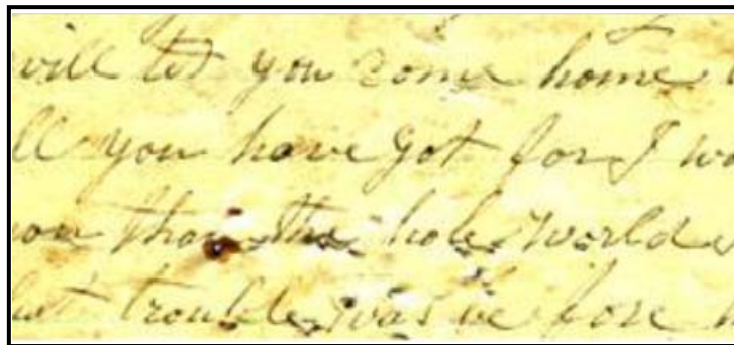 will let you come home
ll you have got for I wo
you than the hole world
hat trouble was be fore